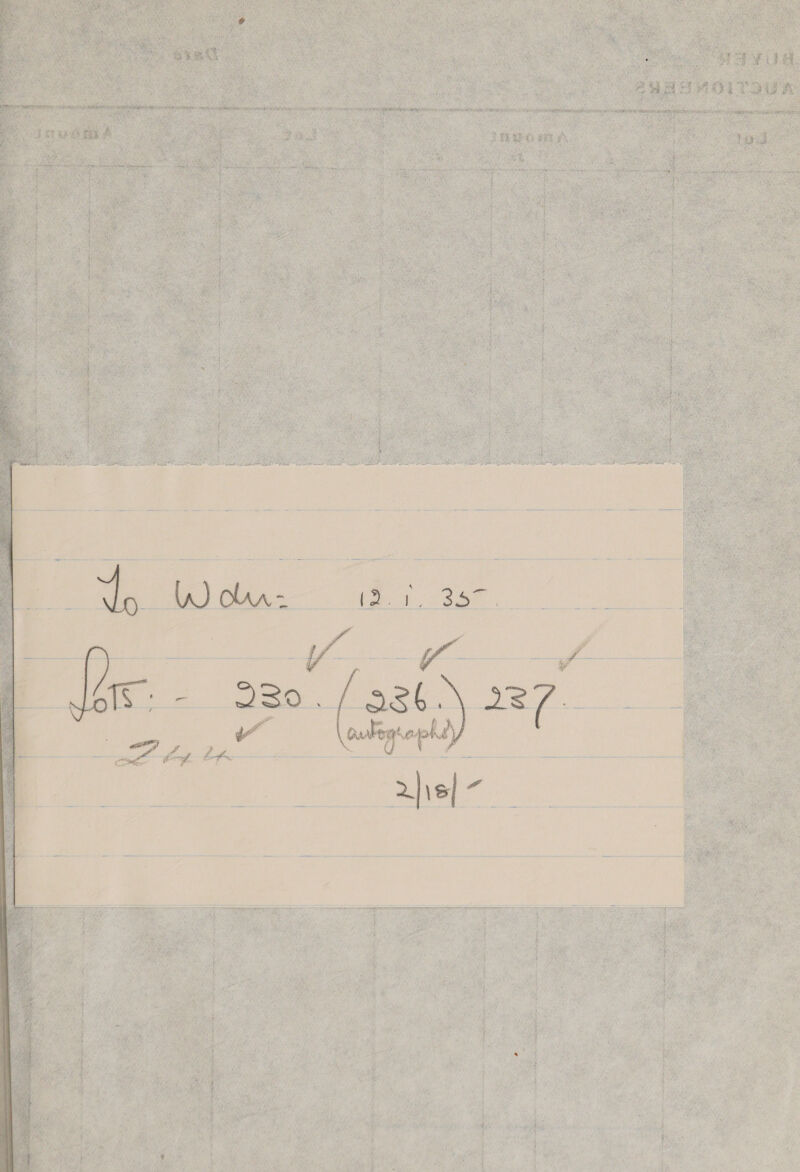 Date
BUYER
AUCTIONEERS
Lot Amount Lot Amount
To Wdr:- 12. i. 35-.
Lots: - 230. (236.) 237.
(autographs)
244
2/18/-